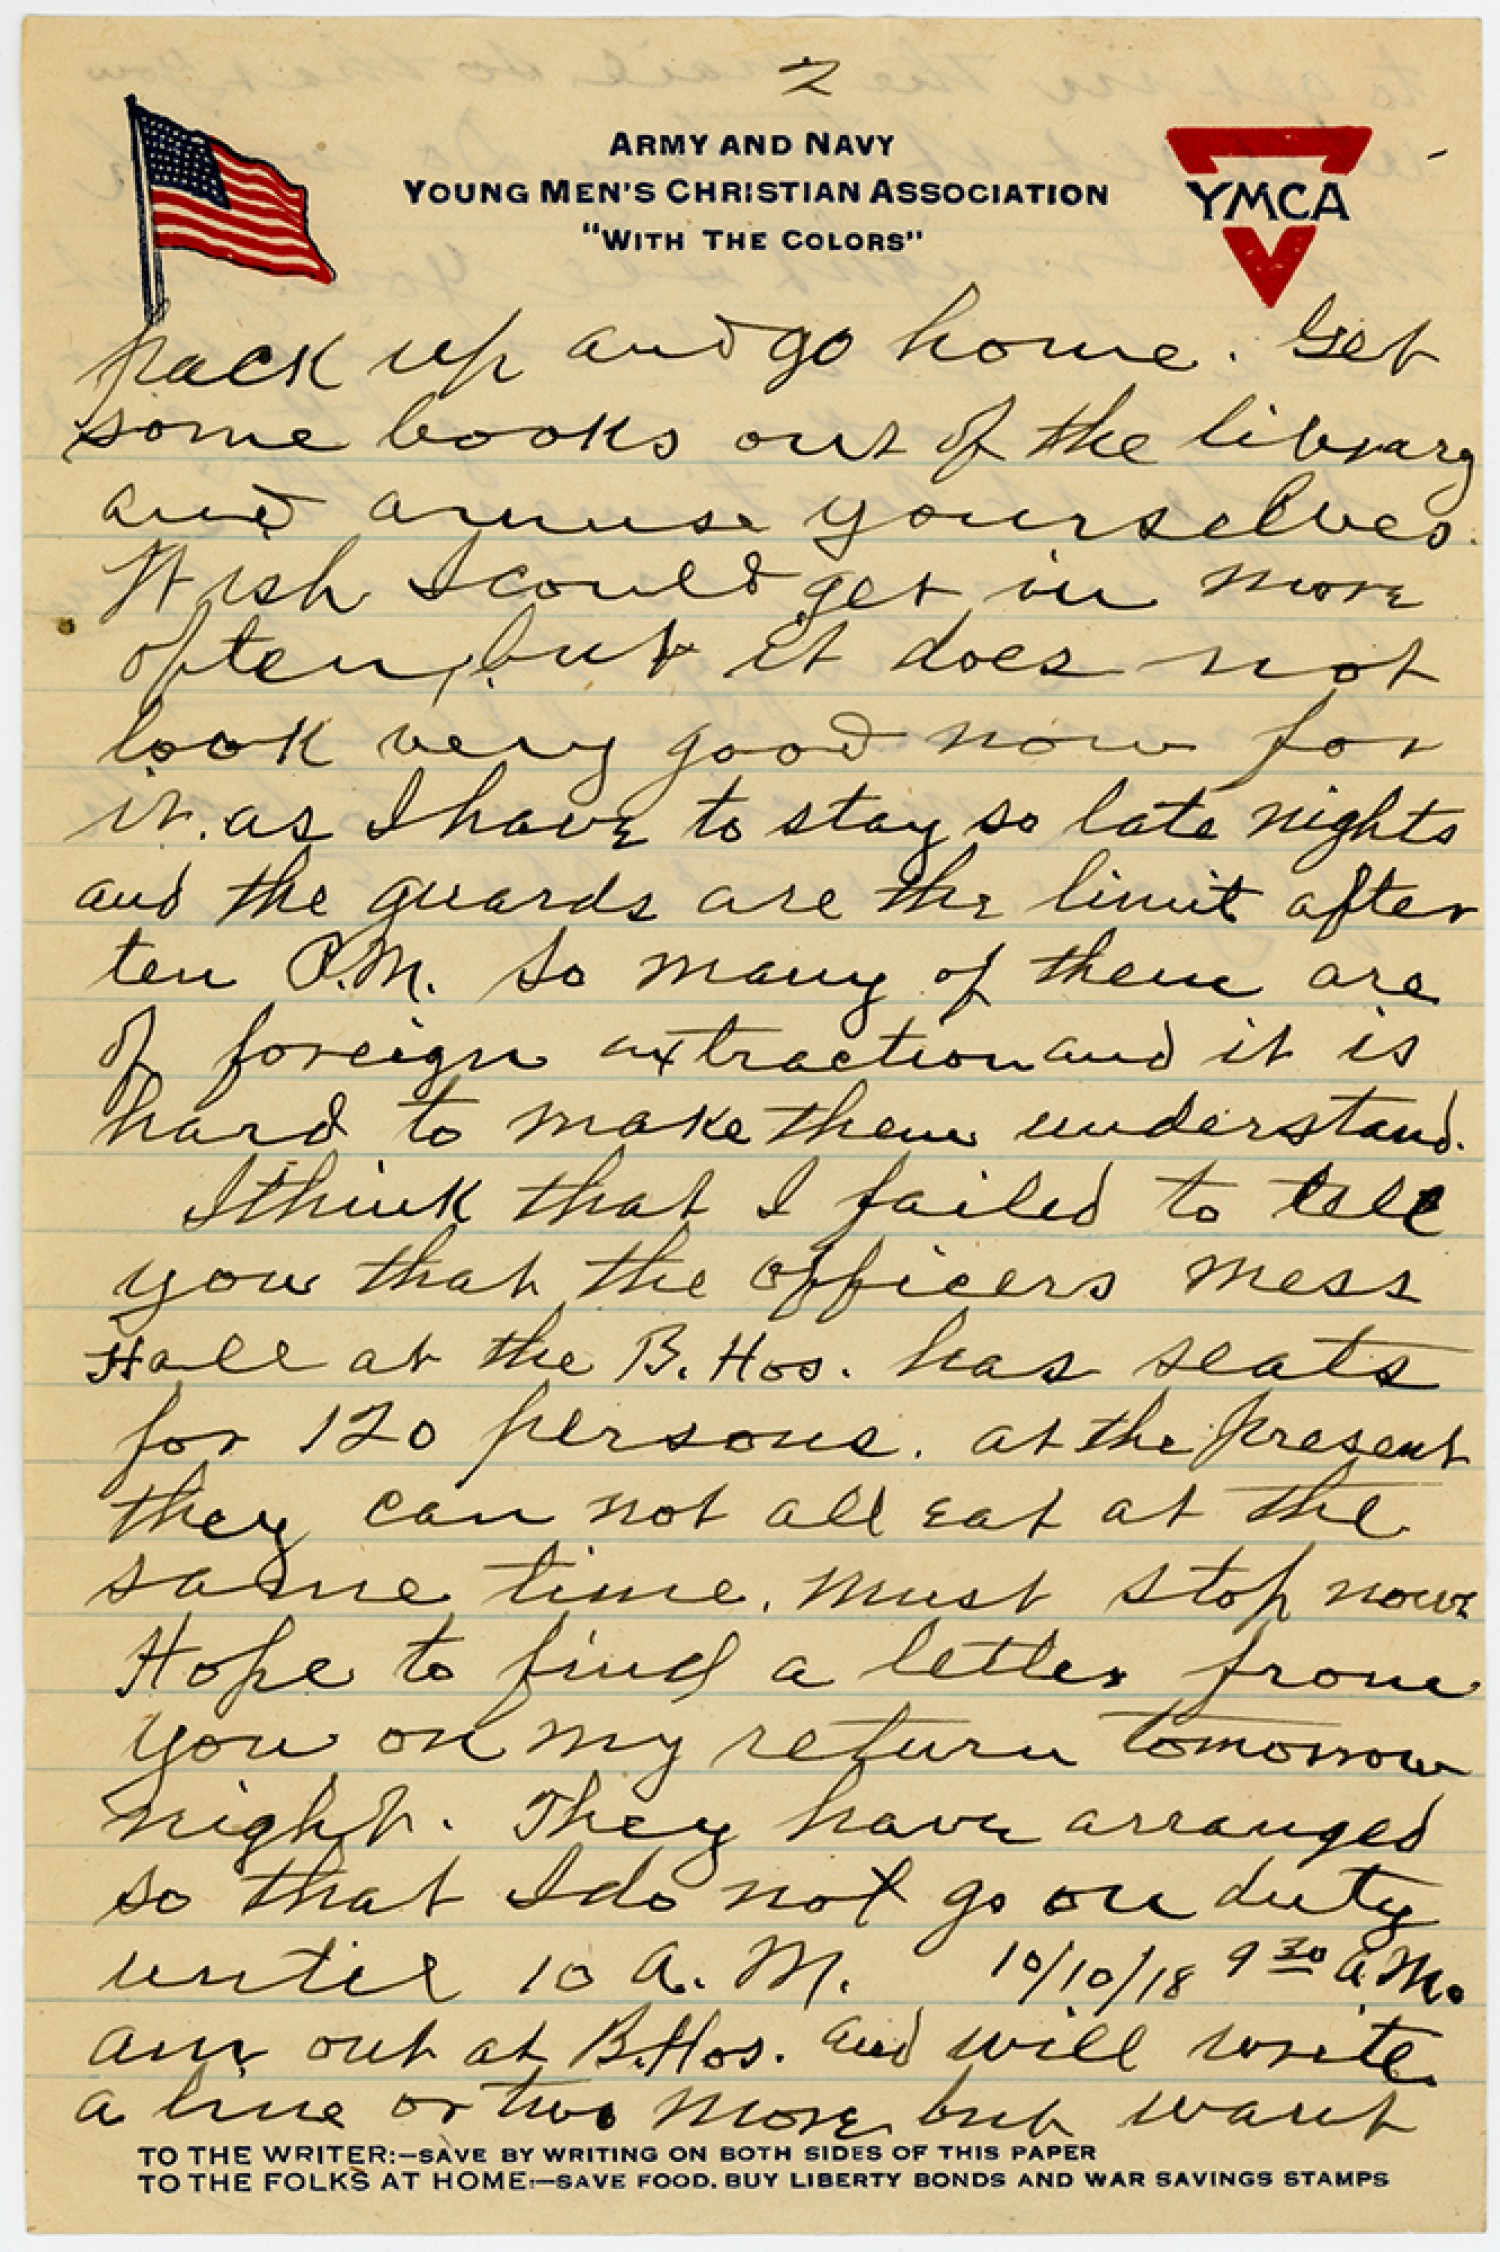 2
ARMY AND NAVY
YOUNG MEN'S CHRISTIAN ASSOCIATION
"WITH THE COLORS"
YMCA
pack up and go home. Get
some books out of the library
and amuse yourselves.
Wish I could get in more
often, but it does not
look very good now for
it. as I have to stay so late nights
and the guards are the limit after
ten P.M. So many of them are
of foreign extraction and it is
hard to make them understand.
I think that I failed to tell
you that the officers mess
Hall at the B. Hos. has seats
for 120 persons. at the present
they can not all eat at the
same time. must stop now
Hope to find a letter from
you on my return tomorrow
night. They have arranged
so that I do not go on duty
until 10 A. M. 10/10/18 9 30 A.M.
am out at B.Hos. and will write
a line or two more but want
TO THE WRITER:—SAVE BY WRITING ON BOTH SIDES OF THIS PAPER
TO THE FOLKS AT HOME:—SAVE FOOD. BUY LIBERTY BONDS AND WAR SAVINGS STAMPS